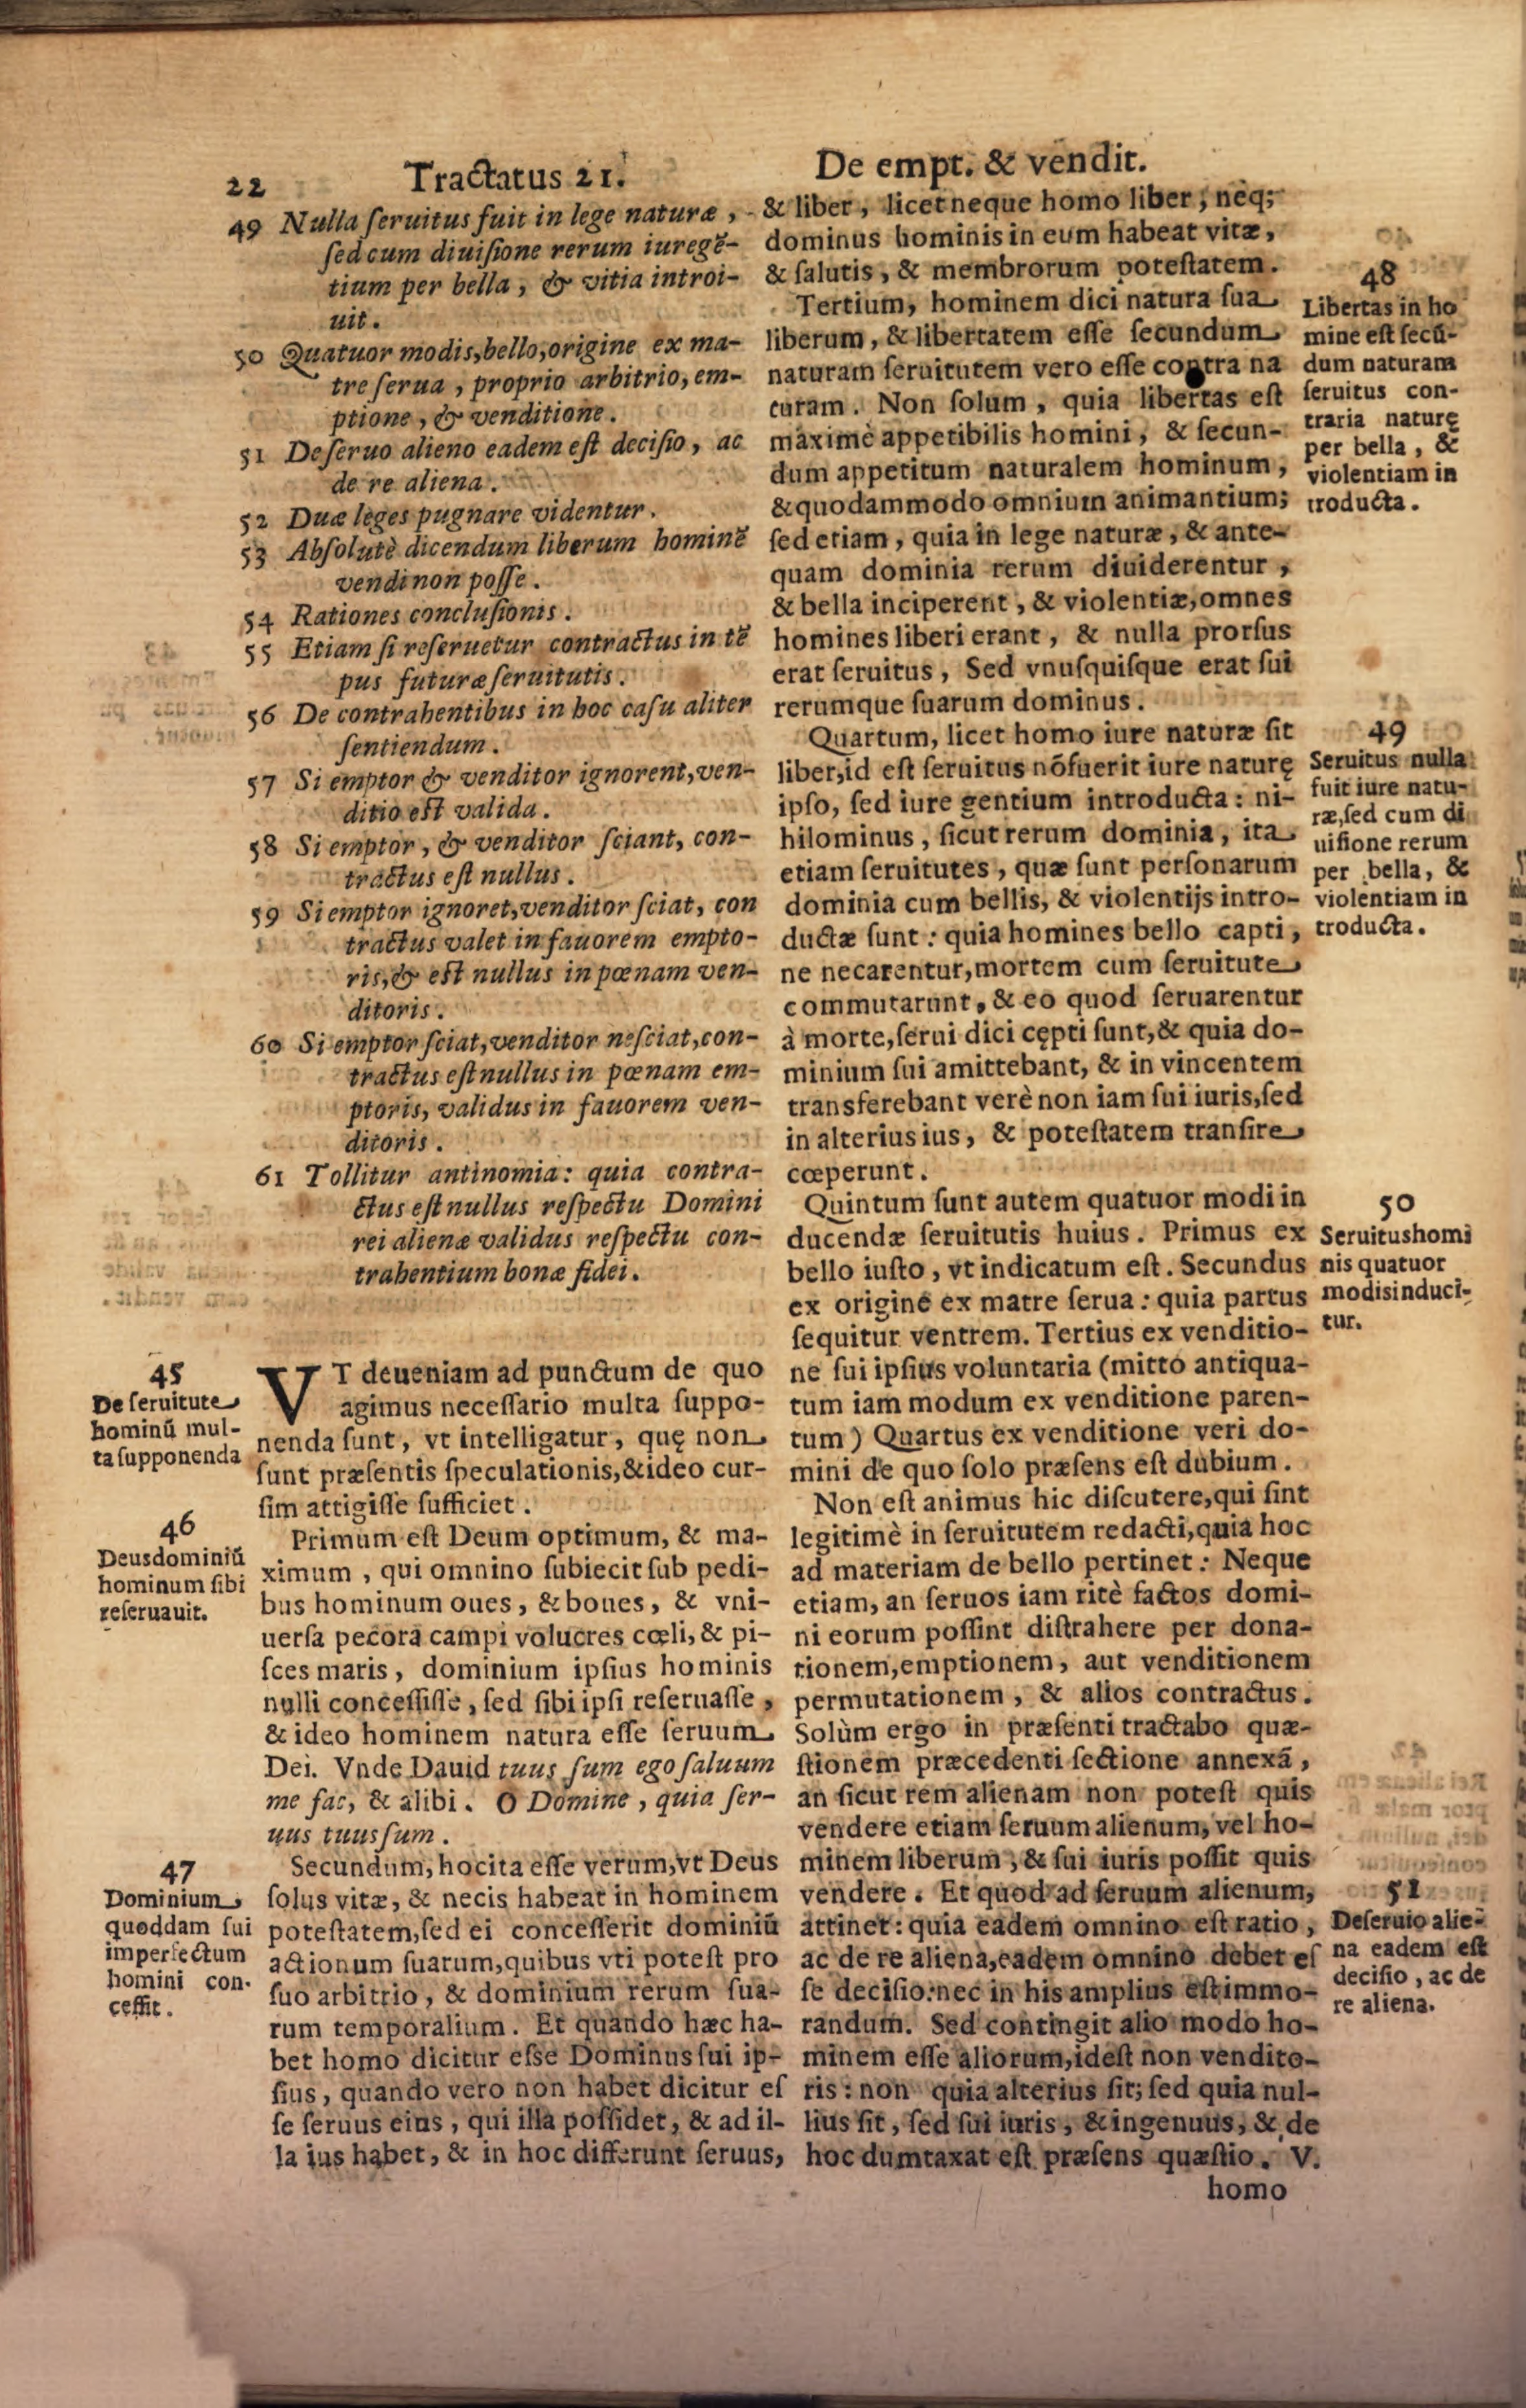 22
Tractatus 21.
De empt. & vendit.
49 Nulla ſeruitus fuit in lege naturæ,
ſed cum diuiſione rerum iuregē-
tium per bella, & vitia introi-
uit.
50 Quatuor modis, bello, origine ex ma-
tre ſerua, proprio arbitrio, em-
ptione, & venditione.
51 De ſeruo alieno eadem eſt deciſio, ac
de re aliena.
52 Duæ leges pugnare videntur.
53 Abſolutè dicendum liberum hominē
vendi non poſſe.
54 Rationes concluſionis.
55 Etiam ſi reſeruetur contractus in tē
pus futuræ ſeruitutis.
56 De contrahentibus in hoc caſu aliter
ſentiendum.
57 Si emptor & venditor ignorent, ven-
ditio eſt valida.
58 Si emptor, & venditor ſciant, con-
tractus eſt nullus.
59 Si emptor ignoret, venditor ſciat, con
tractus valet in fauorem empto-
ris, & eſt nullus in pœnam ven-
ditoris.
60 Si emptor ſciat, venditor neſciat, con-
tractus eſt nullus in pœnam em-
ptoris, validus in fauorem ven-
ditoris.
61 Tollitur antinomia: quia contra-
ctus eſt nullus reſpectu Domini
rei alienæ validus reſpectu con-
trahentium bonæ fidei.
45
De ſeruitute
hominū mul-
ta ſupponenda
VT deueniam ad punctum de quo
agimus neceſſario multa ſuppo-
nenda ſunt, vt intelligatur, quę non
ſunt præſentis ſpeculationis, & ideo cur-
ſim attigiſſe ſufficiet.
46
Deus dominiū
hominum ſibi
reſeruauit.
Primum eſt Deum optimum, & ma-
ximum, qui omnino ſubiecit ſub pedi-
bus hominum oues, & boues, & vni-
uerſa pecora campi volucres cœli, & pi-
ſces maris, dominium ipſius hominis
nulli conceſſiſſe, ſed ſibi ipſi reſeruaſſe,
& ideo hominem natura eſſe ſeruum
Dei. Vnde Dauid tuus ſum ego ſaluum
me fac, & alibi. O Domine, quia ſer-
uus tuus ſum.
47
Dominium
quoddam ſui
imperfectum
homini con-
ceſſit.
Secundum, hoc ita eſſe verum, vt Deus
ſolus vitæ, & necis habeat in hominem
poteſtatem, ſed ei conceſſerit dominiū
actionum ſuarum, quibus vti poteſt pro
ſuo arbitrio, & dominium rerum ſua-
rum temporalium. Et quando hæc ha-
bet homo dicitur eſse Dominus ſui ip-
ſius, quando vero non habet dicitur eſ
ſe ſeruus eius, qui illa poſſidet, & ad il-
la ius habet, & in hoc differunt ſeruus,
& liber, licet neque homo liber, neq;
dominus hominis in eum habeat vitæ,
& ſalutis, & membrorum poteſtatem.
48
Libertas in ho
mine eſt ſecū-
dum naturam
ſeruitus con-
traria naturę
per bella, &
violentiam in
troducta.
Tertium, hominem dici natura ſua
liberum, & libertatem eſſe ſecundum
naturam ſeruitutem vero eſſe contra na
turam. Non ſolum, quia libertas eſt
maximè appetibilis homini, & ſecun-
dum appetitum naturalem hominum,
& quodammodo omnium animantium;
ſed etiam, quia in lege naturæ, & ante-
quam dominia rerum diuiderentur,
& bella inciperent, & violentiæ, omnes
homines liberi erant, & nulla prorſus
erat ſeruitus, Sed vnuſquiſque erat ſui
rerumque ſuarum dominus.
49
Seruitus nulla
fuit iure natu-
ræ, ſed cum di
uiſione rerum
per bella, &
violentiam in
troducta.
Quartum, licet homo iure naturæ ſit
liber, id eſt ſeruitus nō fuerit iure naturę
ipſo, ſed iure gentium introducta: ni-
hilominus, ſicut rerum dominia, ita
etiam ſeruitutes, quæ ſunt perſonarum
dominia cum bellis, & violentijs intro-
ductæ ſunt: quia homines bello capti,
ne necarentur, mortem cum ſeruitute
commutarunt, & eo quod ſeruarentur
à morte, ſerui dici cępti ſunt, & quia do-
minium ſui amittebant, & in vincentem
transferebant verè non iam ſui iuris, ſed
in alterius ius, & poteſtatem tranſire
cœperunt.
50
Seruitus homi
nis quatuor
modis induci-
tur.
Quintum ſunt autem quatuor modi in
ducendæ ſeruitutis huius. Primus ex
bello iuſto, vt indicatum eſt. Secundus
ex origine ex matre ſerua: quia partus
ſequitur ventrem. Tertius ex venditio-
ne ſui ipſius voluntaria (mitto antiqua-
tum iam modum ex venditione paren-
tum) Quartus ex venditione veri do-
mini de quo ſolo præſens eſt dubium.
Non eſt animus hic diſcutere, qui ſint
legitimè in ſeruitutem redacti, quia hoc
ad materiam de bello pertinet: Neque
etiam, an ſeruos iam ritè factos domi-
ni eorum poſſint diſtrahere per dona-
tionem, emptionem, aut venditionem
permutationem, & alios contractus.
Solùm ergo in præſenti tractabo quæ-
ſtionem præcedenti ſectione annexā,
an ſicut rem alienam non poteſt quis
vendere etiam ſeruum alienum, vel ho-
minem liberum, & ſui iuris poſſit quis
vendere. Et quod ad ſeruum alienum,
attinet: quia eadem omnino eſt ratio,
ac de re aliena, eadem omnino debet eſ
ſe deciſio: nec in his amplius eſt immo-
randum. Sed contingit alio modo ho-
minem eſſe aliorum, ideſt non vendito-
ris: non quia alterius ſit; ſed quia nul-
lius ſit, ſed ſui iuris, & ingenuus, & de
hoc dumtaxat eſt præſens quæſtio. V.
51
De ſeruio alie-
na eadem eſt
deciſio, ac de
re aliena.
homo